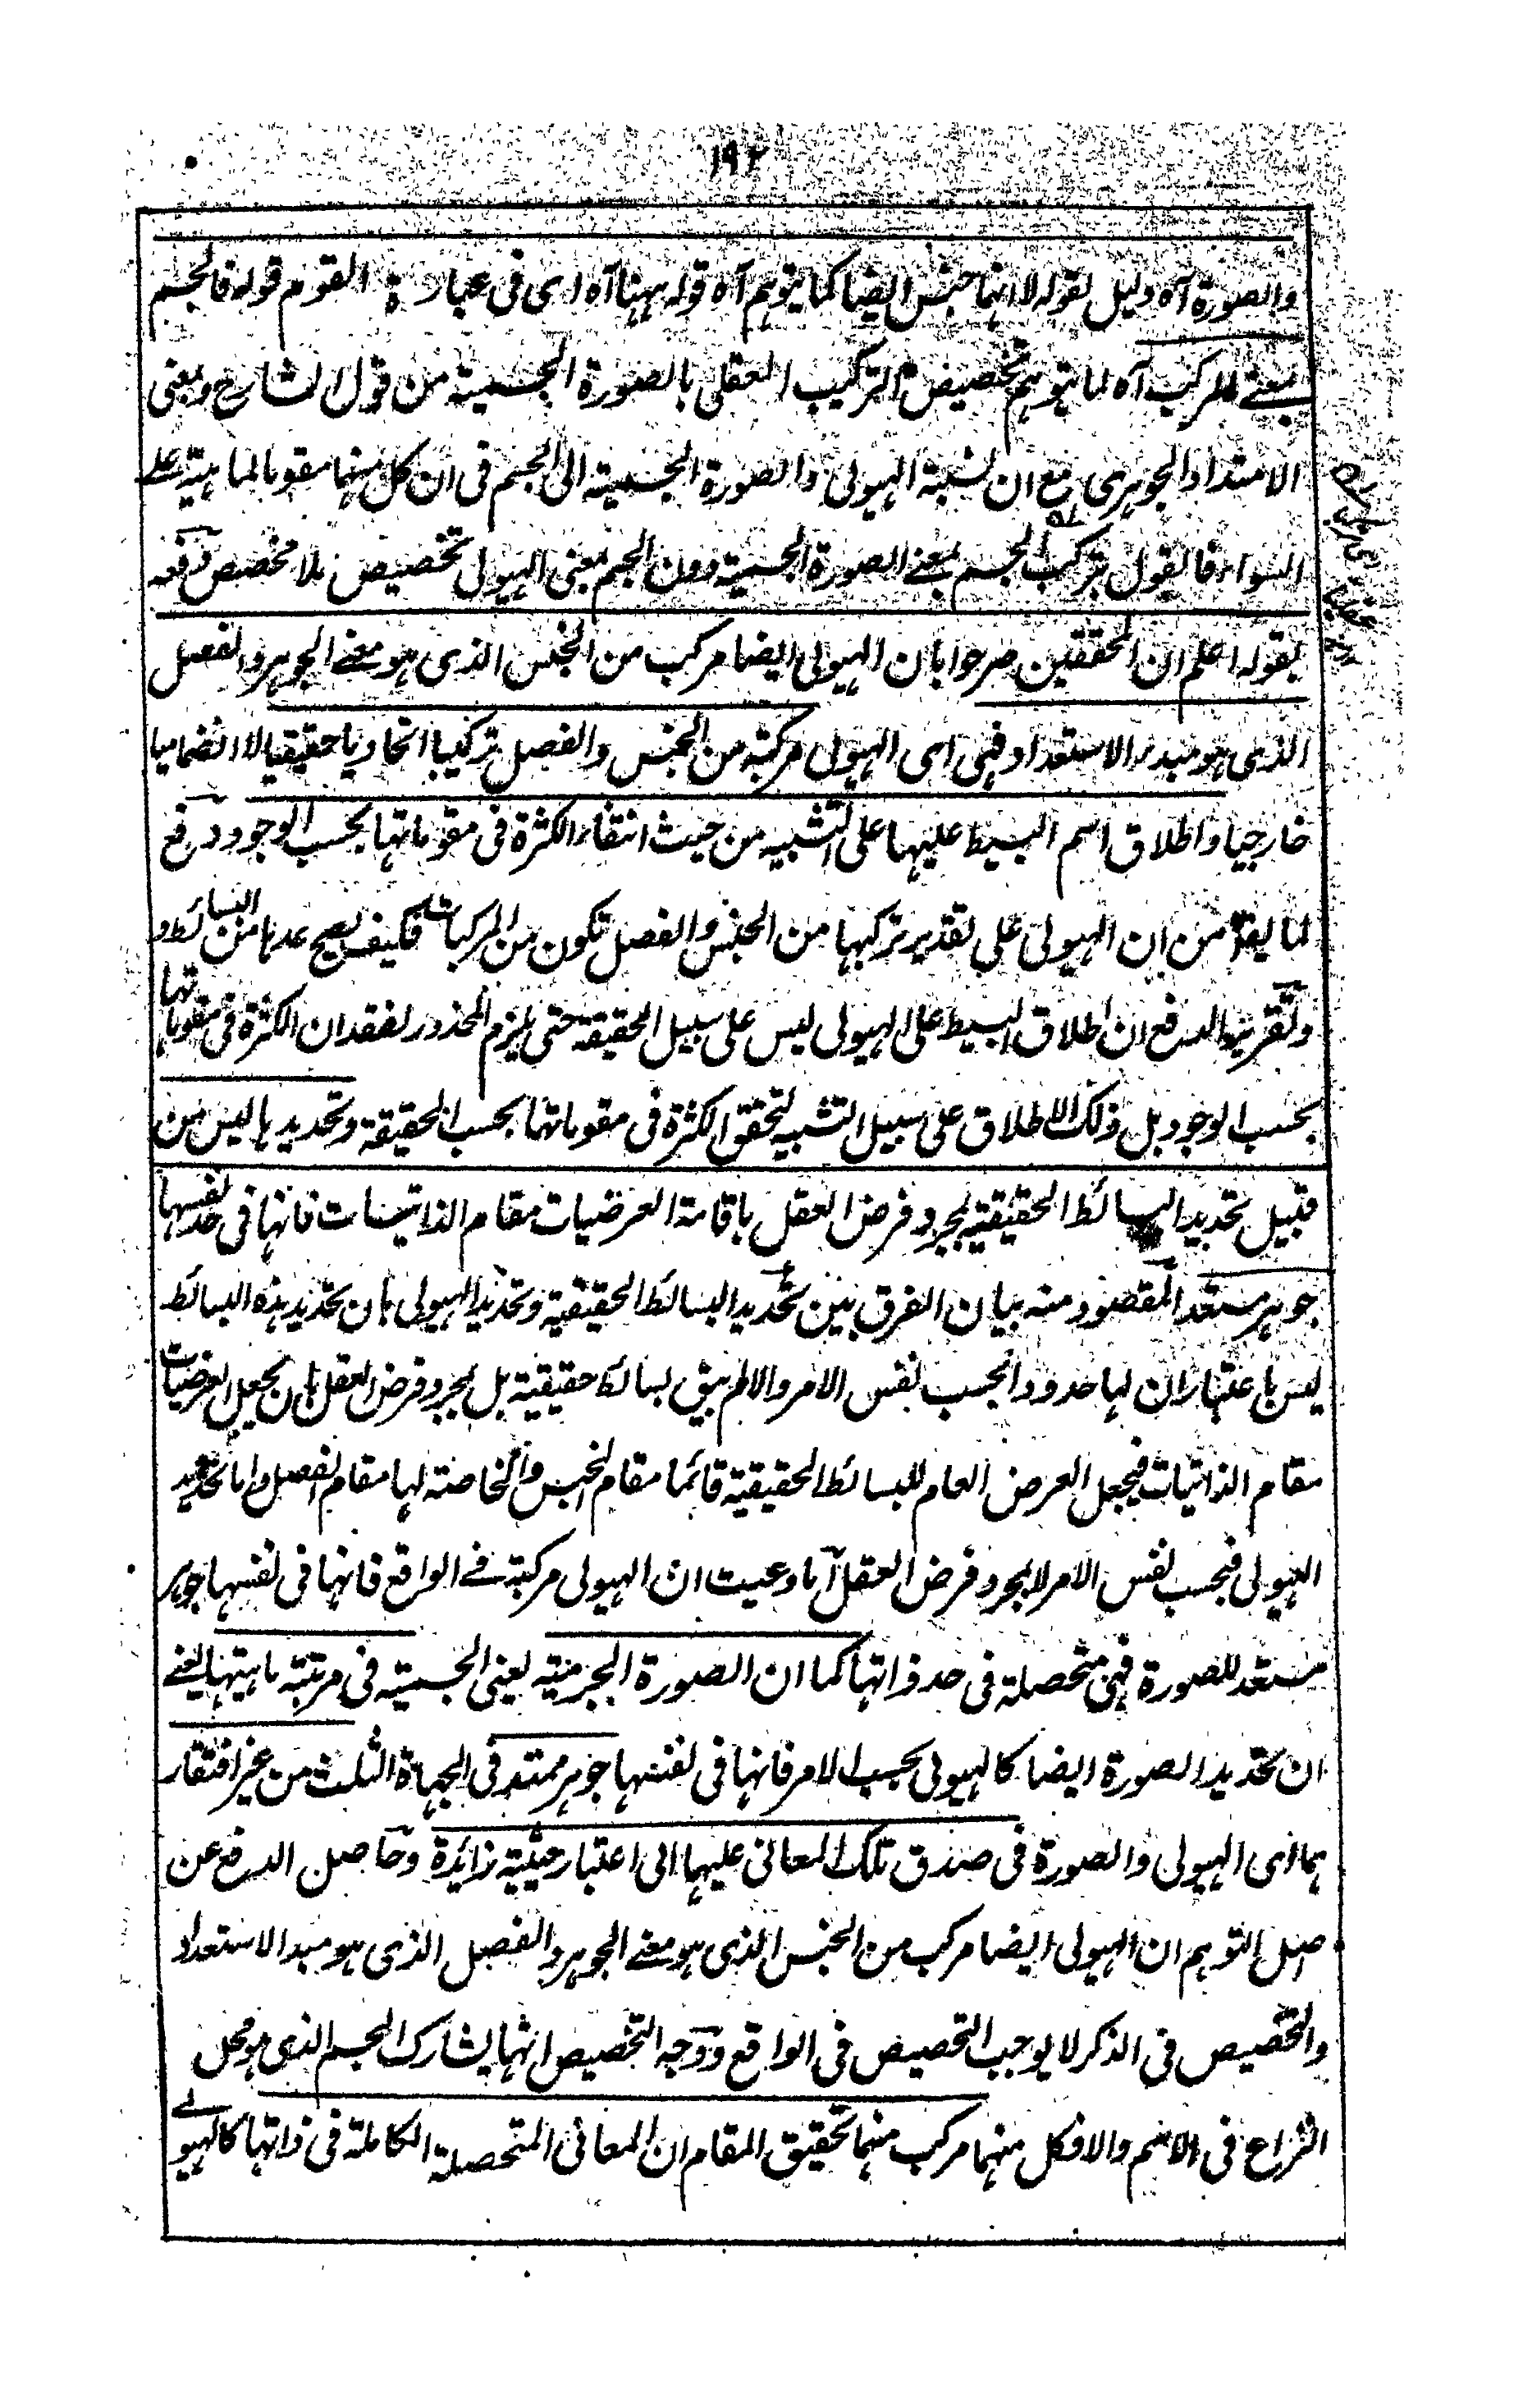 ١٩٢
والصورة آه دليل لقوله لا انها جنس ايضا كما يتوهم آه قوله ههنا آه اى فى عبارة القوم قوله فالجسم
بمعنے المركب آه لما يتوهم تخصيص التركيب العقلى بالصورة الجسمية من قول الشارح ومعنى
الامتداد الجوهرى مع ان نسبة الهيولى والصورة الجسمية الى الجسم فى ان كل منهما مقوما لماهيته علے
السواء فالقول بتركب الجسم بمعنے الصورة الجسمية دون الجسم بمعنى الهيولى تخصيص بلا مخصص دفعه
بقوله اعلم ان المحققين صرحوا بان الهيولى ايضا مركب من الجنس الذى هو معنے الجوهر والفصل
الذى هو مبدء الاستعداد فهى اى الهيولى مركبة من الجنس والفصل تركيبا اتحاديا حقيقيا لا انضماميا
خارجيا واطلاق اسم البسيط عليها على التشبيه من حيث انتفاء الكثرة فى مقوماتها بحسب الوجود دفع
لما يقال من ان الهيولى على تقدير تركبها من الجنس والفصل تكون من المركبات فكيف يصح عدها من البسائط و
وتقرير الدفع ان اطلاق البسيط على الهيولى ليس على سبيل الحقيقة حتى يلزم المحذور لفقدان الكثرة فى مقوماتها
بحسب الوجود بل ذلك الاطلاق على سبيل التشبيه لتحقق الكثرة فى مقوماتها بحسب الحقيقة وتحديدها ليس من
قبيل تحديد البسائط الحقيقية بمجرد فرض العقل باقامة العرضيات مقام الذاتيات فانها فى حد نفسها
جوهر مستعد المقصود منه بيان الفرق بين تحديد البسائط الحقيقية وتحديد الهيولى بان تحديد هذه البسائط
ليس باعتبار ان لها حدودا بحسب نفس الامر والا لم يبق بسائط حقيقية بل بمجرد فرض العقل بان يجعل العرضيات
مقام الذاتيات فيجعل العرض العام للبسائط الحقيقية قائما مقام الجنس والخاصة لها مقام الفصل واما تحديد
الهيولى فبحسب نفس الامر لا بمجرد فرض العقل لما دعيت ان الهيولى مركبة فے الواقع فانها فى نفسها جوهر
مستعد للصورة فهى متحصلة فى حد ذاتها كما ان الصورة الجرمية يعنى الجسمية فى مرتبة ماهيتها يعنے
ان تحديد الصورة ايضا كالهيولى بحسب الامر فانها فى نفسها جوهر ممتد فى الجهات الثلث من غير افتقار
هما اى الهيولى والصورة فى صدق تلك المعانى عليها الى اعتبار حيثية زائدة وحاصل الدفع عن
اصل التوهم ان الهيولى ايضا مركب من الجنس الذى هو معنے الجوهر والفصل الذى هو مبدء الاستعداد
والتخصيص فى الذكر لا يوجب التخصيص فى الواقع ووجه التخصيص انها يشارك الجسم الذى هو محل
النزاع فى الاسم والا فكل منهما مركب منهما تحقيق المقام ان المعانى المتحصلة الكاملة فى ذاتها كالهيولے